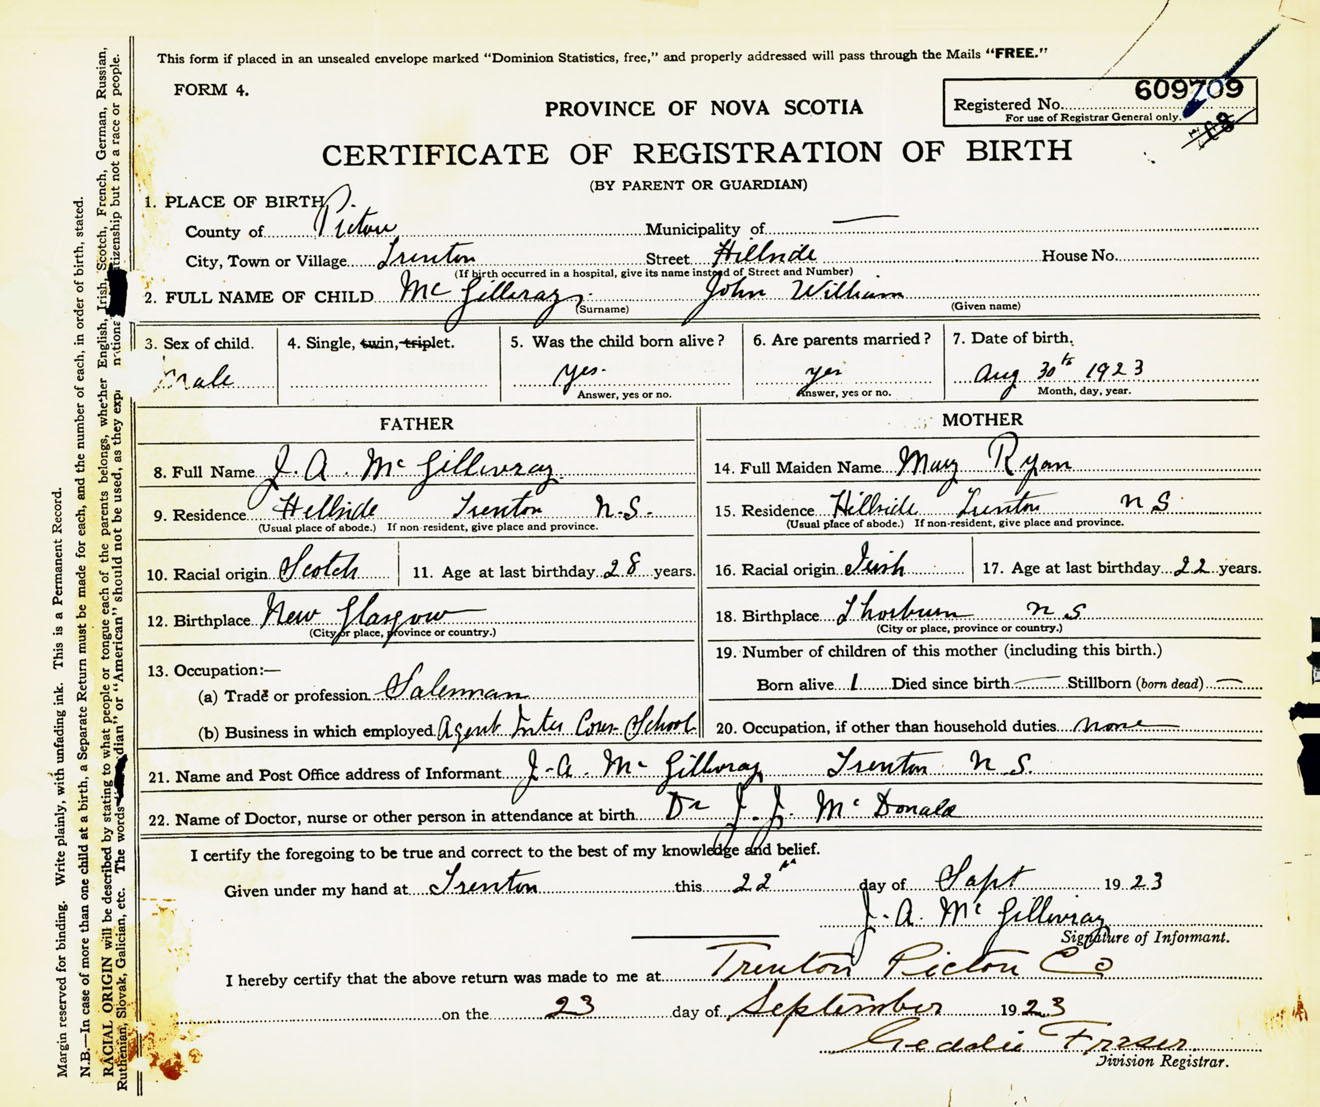 This form if placed in an unsealed envelope marked "Dominion Statistics, free," and properly addressed will pass through the Mails "FREE."
FORM 4.
PROVINCE OF NOVA SCOTIA
Registered No. 609709
For use of Registrar General only.
CERTIFICATE OF REGISTRATION OF BIRTH
(BY PARENT OR GUARDIAN)
1. PLACE OF BIRTH
County of Pictou Municipality of —
City, Town or Village Trenton Street Hillside House No.
(If birth occurred in a hospital, give its name instead of Street and Number)
2. FULL NAME OF CHILD McGillivray John William
(Surname) (Given name)
3. Sex of child. 4. Single, twin, triplet. 5. Was the child born alive? 6. Are parents married? 7. Date of birth.
male yes. yes Aug 30th 1923
Answer, yes or no. Answer, yes or no. Month, day, year.
FATHER MOTHER
8. Full Name J. A. McGillivray 14. Full Maiden Name Mary Ryan
9. Residence Hillside Trenton N.S. 15. Residence Hillside Trenton N S
(Usual place of abode.) If non-resident, give place and province. (Usual place of abode.) If non-resident, give place and province.
10. Racial origin Scotch 11. Age at last birthday 28 years. 16. Racial origin Irish 17. Age at last birthday 22 years.
12. Birthplace New Glasgow 18. Birthplace Thorburn N S
(City or place, province or country.) (City or place, province or country.)
13. Occupation:— 19. Number of children of this mother (including this birth.)
(a) Trade or profession Salesman Born alive 1 Died since birth — Stillborn (born dead) —
(b) Business in which employed Agent Inter Corr School 20. Occupation, if other than household duties none
21. Name and Post Office address of Informant J. A. McGillivray Trenton N.S.
22. Name of Doctor, nurse or other person in attendance at birth Dr J. J. McDonald
I certify the foregoing to be true and correct to the best of my knowledge and belief.
Given under my hand at Trenton this 22nd day of Sept 1923
J. A. McGillivray
Signature of Informant.
I hereby certify that the above return was made to me at Trenton Pictou Co
on the 23 day of September 1923
Geddie Fraser
Division Registrar.
Margin reserved for binding. Write plainly, with unfading ink. This is a Permanent Record.
N.B.—In case of more than one child at a birth, a Separate Return must be made for each, and the number of each, in order of birth, stated.
RACIAL ORIGIN will be described by stating to what people or tongue each of the parents belongs, whether English, Irish, Scotch, French, German, Russian,
Ruthenian, Slovak, Galician, etc. The words dian" or "American" should not be used, as they exp nationa itizenship but not a race or people.